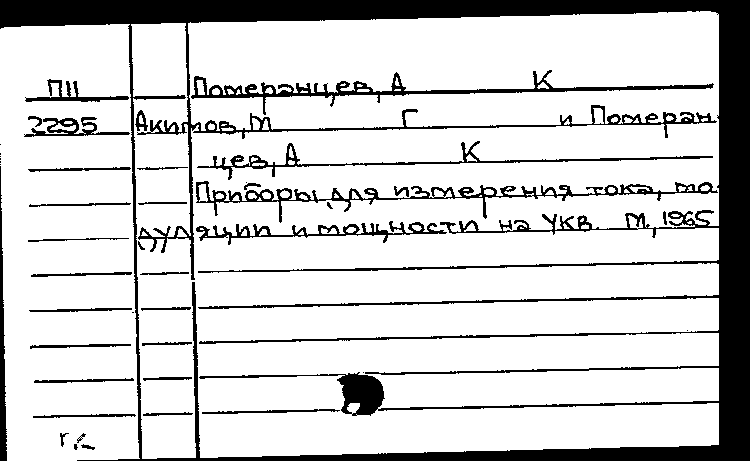 П11 Померанцев, А К
2295 Акимов, М Г и Померан
цев, А К
Приборы для измерения тока, мо
дуляции и мощности на УКВ. М., 1965